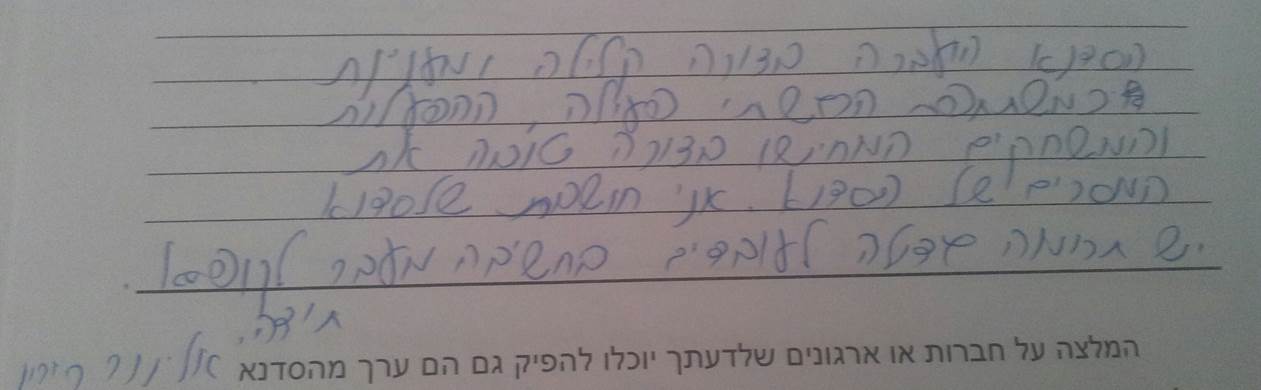 הסדנא הועברה בצורה קלילה ומענינת
כמשתתפת הרגשתי פעילה, ההפעלות
והמשחקים המחישו בצורה טובה את
המסרים של הסדנא. אני חושבת שלסדנא
יש תרומה גדולה לעובדים בחשיבה מעבר לקופסא.
תודה,
המלצה על חברות או ארגונים שלדעתך יוכלו להפיק גם הם ערך מהסדנא